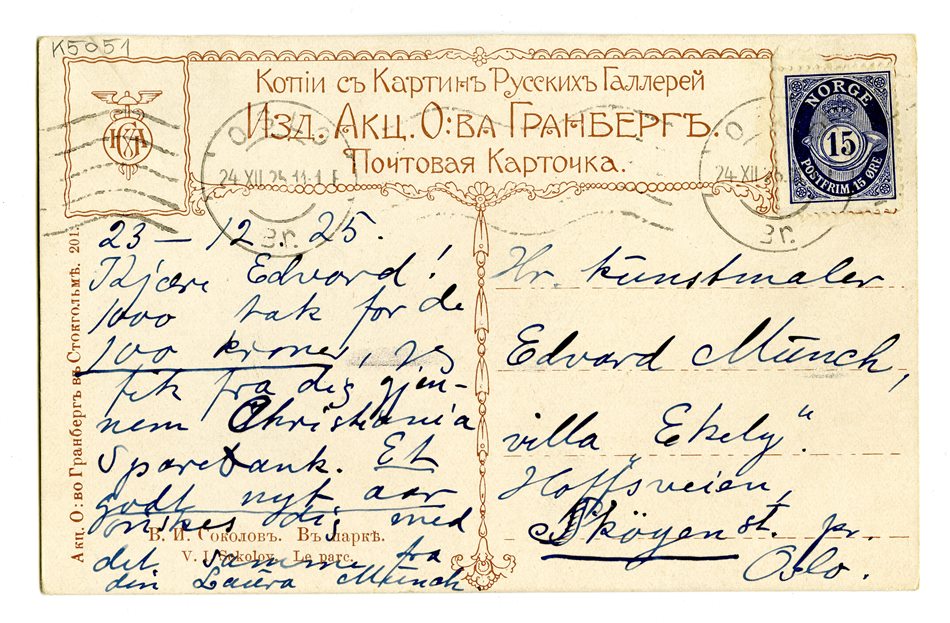 K5051
Копіи съ Картинъ Русскихъ Галлерей
Изд. Акц. О:ва Гранбергъ.
Почтовая Карточка.
NORGE
15
POSTFRIM. 15 ØRE
OSLO
24 XII 25. 11-1 E
Br.
24 XII 25.
Br.
23 – 12. 25.
Kjære Edvard!
1000 tak for de
100 kroner, jeg
fik fra dig gjen-
nem Christiania
Sparebank. Et
godt nyt aar
ønskes dig med
det samme fra
din Laura Munch
Hr. kunstmaler
Edvard Munch,
villa „Ekely“.
Hoffsveien,
Skøyen st. pr.
Oslo.
В. И. Соколовъ. Въ паркѣ.
V. I. Sokolov. Le parc.
Акц. О:во Гранбергъ въ Стокгольмѣ. 201.